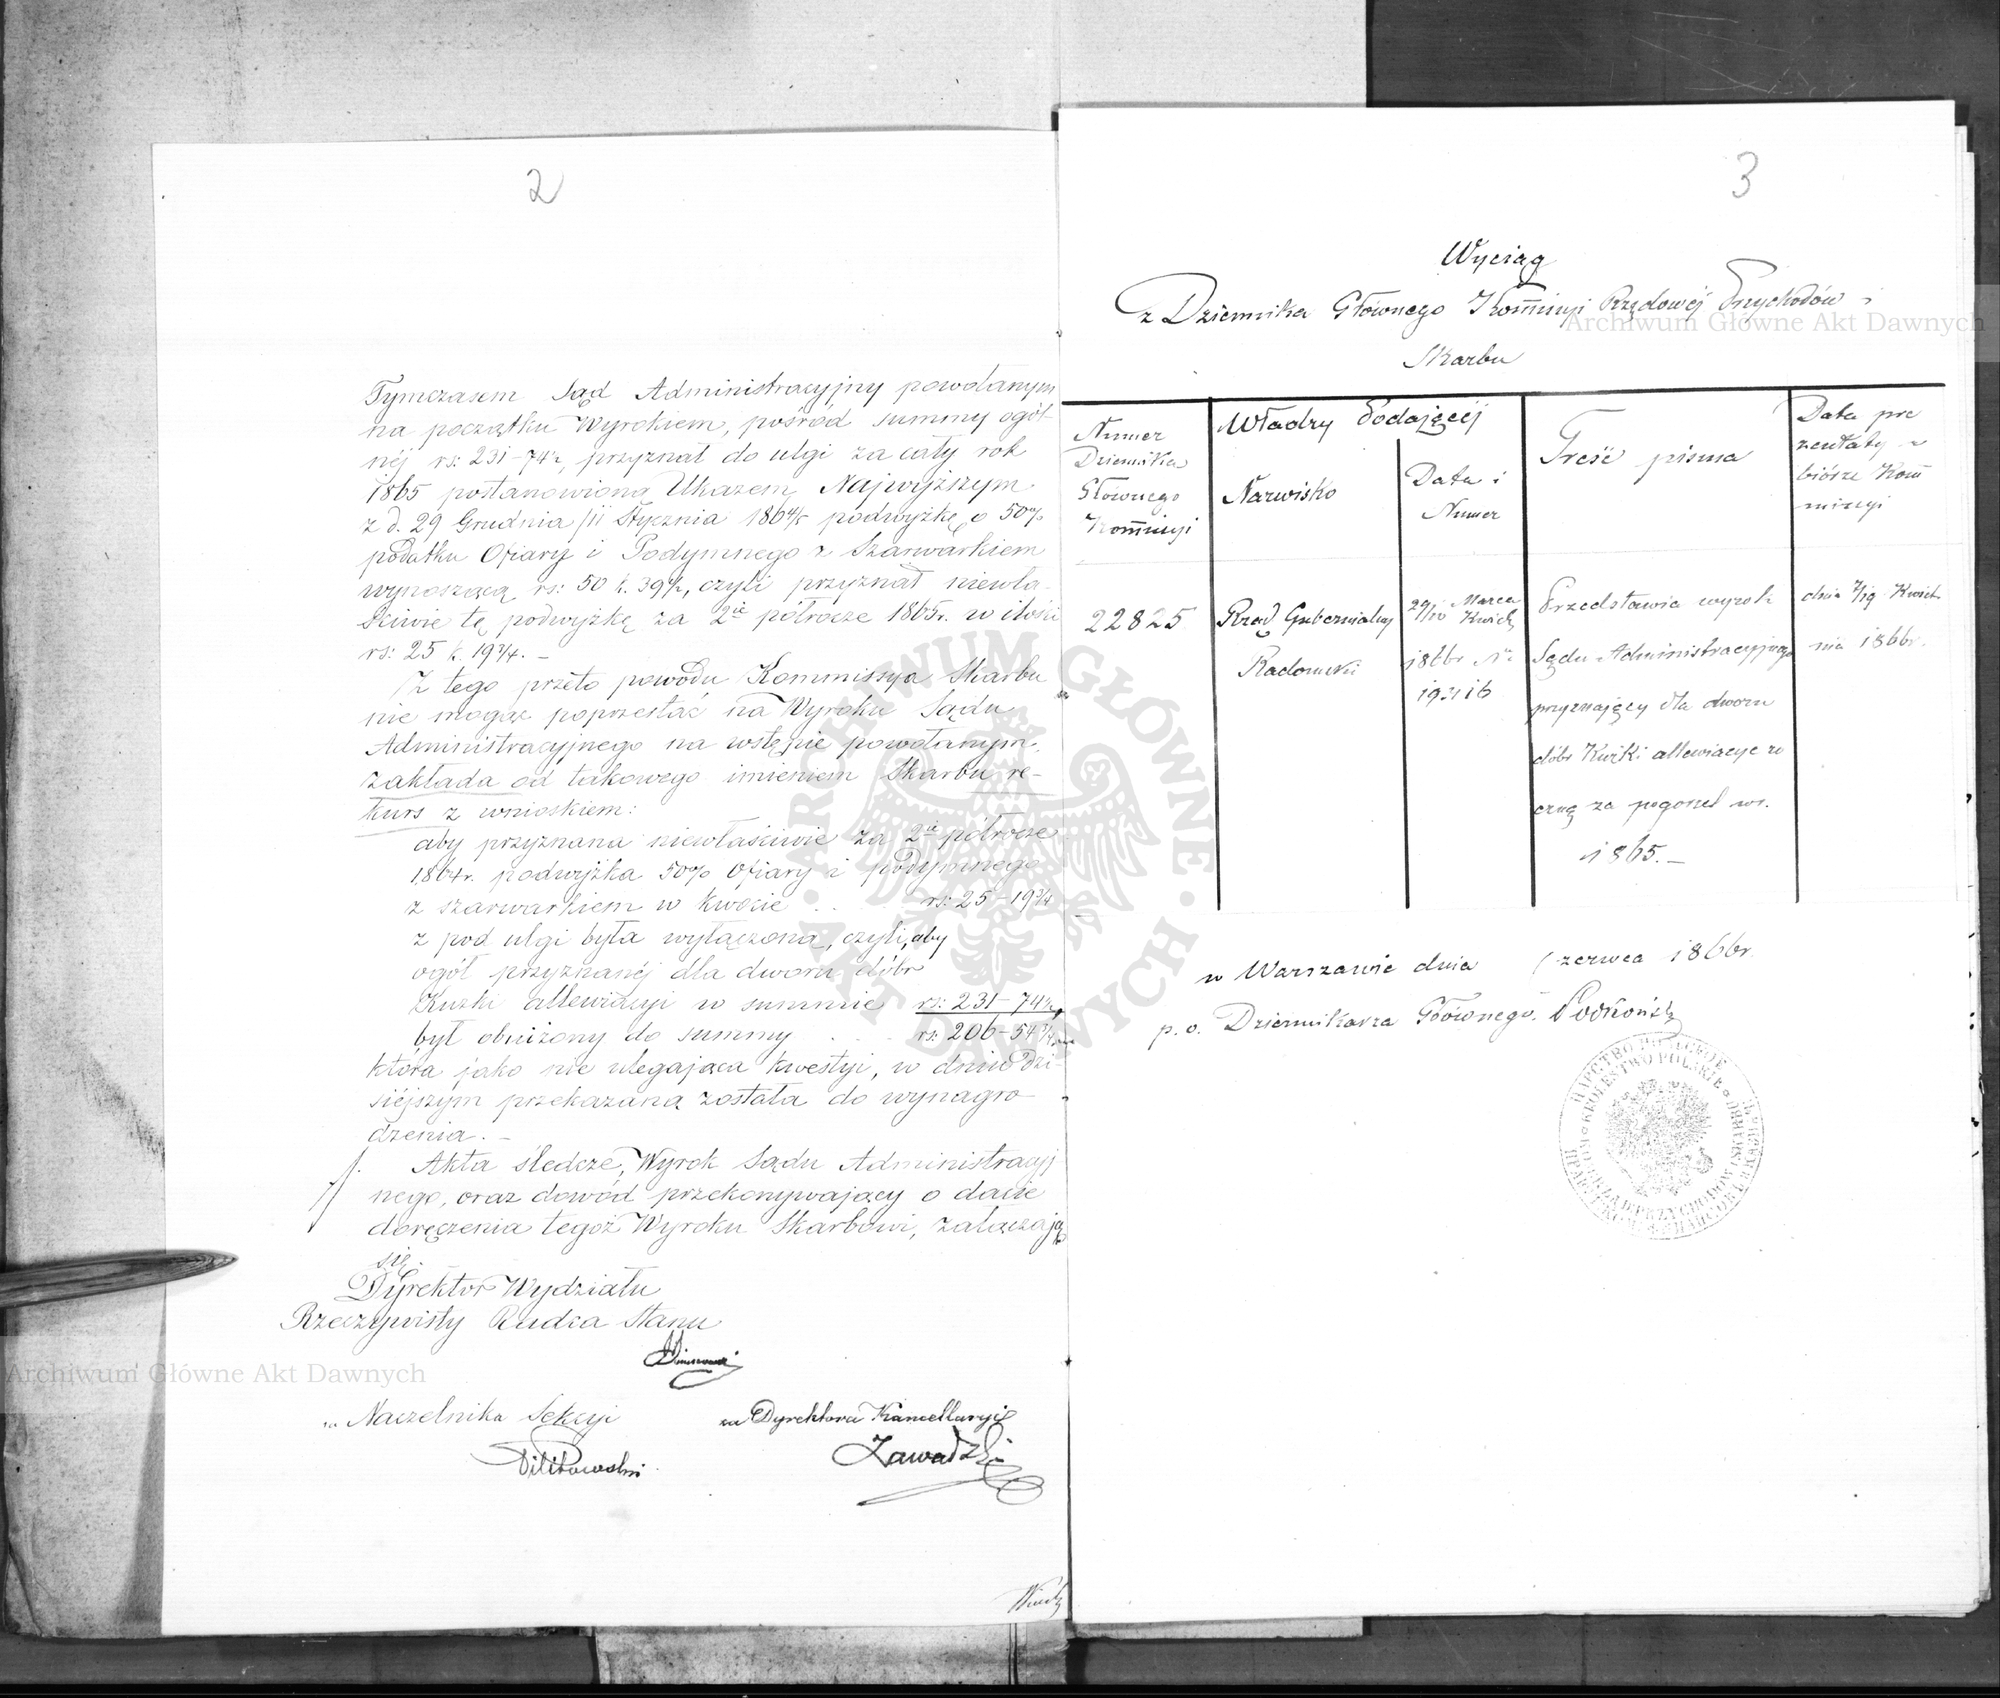 2
Tymczasem Sąd Administracyjny powołanym
na początku Wyrokiem, pośród summy ogól-
néj rs: 231-74½, przyznał do ulgi za cały rok
1865 postanowioną Ukazem Najwyższym
z d. 29 Grudnia/11 Stycznia 1864/5 podwyżkę o 50%
podatku Ofiary i Podymnego z Szarwarkiem
wynoszącą rs: 50 k. 39½, czyli przyznał niewła-
ściwie tę podwyżkę za 2ie półrocze 1865r. w ilości
rs: 25 k. 19¾. –
Z tego przeto powodu Kommissya Skarbu
nie mogąc poprzestać na Wyroku Sądu
Administracyjnego na wstępie powołanym,
zakłada od takowego imieniem Skarbu re-
kurs z wnioskiem:
aby przyznana niewłaściwie za 2ie półrocze
1864r. podwyżka 50% Ofiary i podymnego
z szarwarkiem w kwocie . . rs: 25-19¾
z pod ulgi była wyłączoną, czyli, aby
ogół przyznanéj dla dworu dóbr
Kuzki allewiacyi w summie rs: 231-74½,
był obniżony do summy . . . rs: 206-54¾
która jako nie ulegająca kwestyi, w dniu dzi-
siéjszym przekazaną została do wynagro-
dzenia. –
Akta śledcze, Wyrok Sądu Administracyj
nego, oraz dowód przekonywający o dacie
doręczenia tegoż Wyroku Skarbowi, załączają
się.
Dyrektor Wydziału
Rzeczywisty Radca Stanu
za Naczelnika Sekcyi
za Dyrektora Kancellaryi
Zawadzki
3
Wyciąg
z Dziennika Głównego Kommisyi Rządowéj Przychodów i
Skarbu
Numer
Dziennika
Głównego
Kommisyi
Władzy Podającéj
Nazwisko
Data i
Numer
Treść pisma
Data pre
zentaty w
biórze Kom
missyi
22825
Rząd Gubernialny
Radomski
29/10 Marca Kwietn
1866r No
19316
Przedstawia wyrok
Sądu Administracyjnego
przyznający dla dworu
dóbr Kuzki allewiacye w
czną za pogorzel w r.
1865. –
dnia 7/19 Kwiet
nia 1866r.
w Warszawie dnia / Czerwca 1866r.
p. o. Dziennikarza Głównego.
Archiwum Główne Akt Dawnych
Archiwum Główne Akt Dawnych
ARCHIWUM GŁÓWNE AKT DAWNYCH